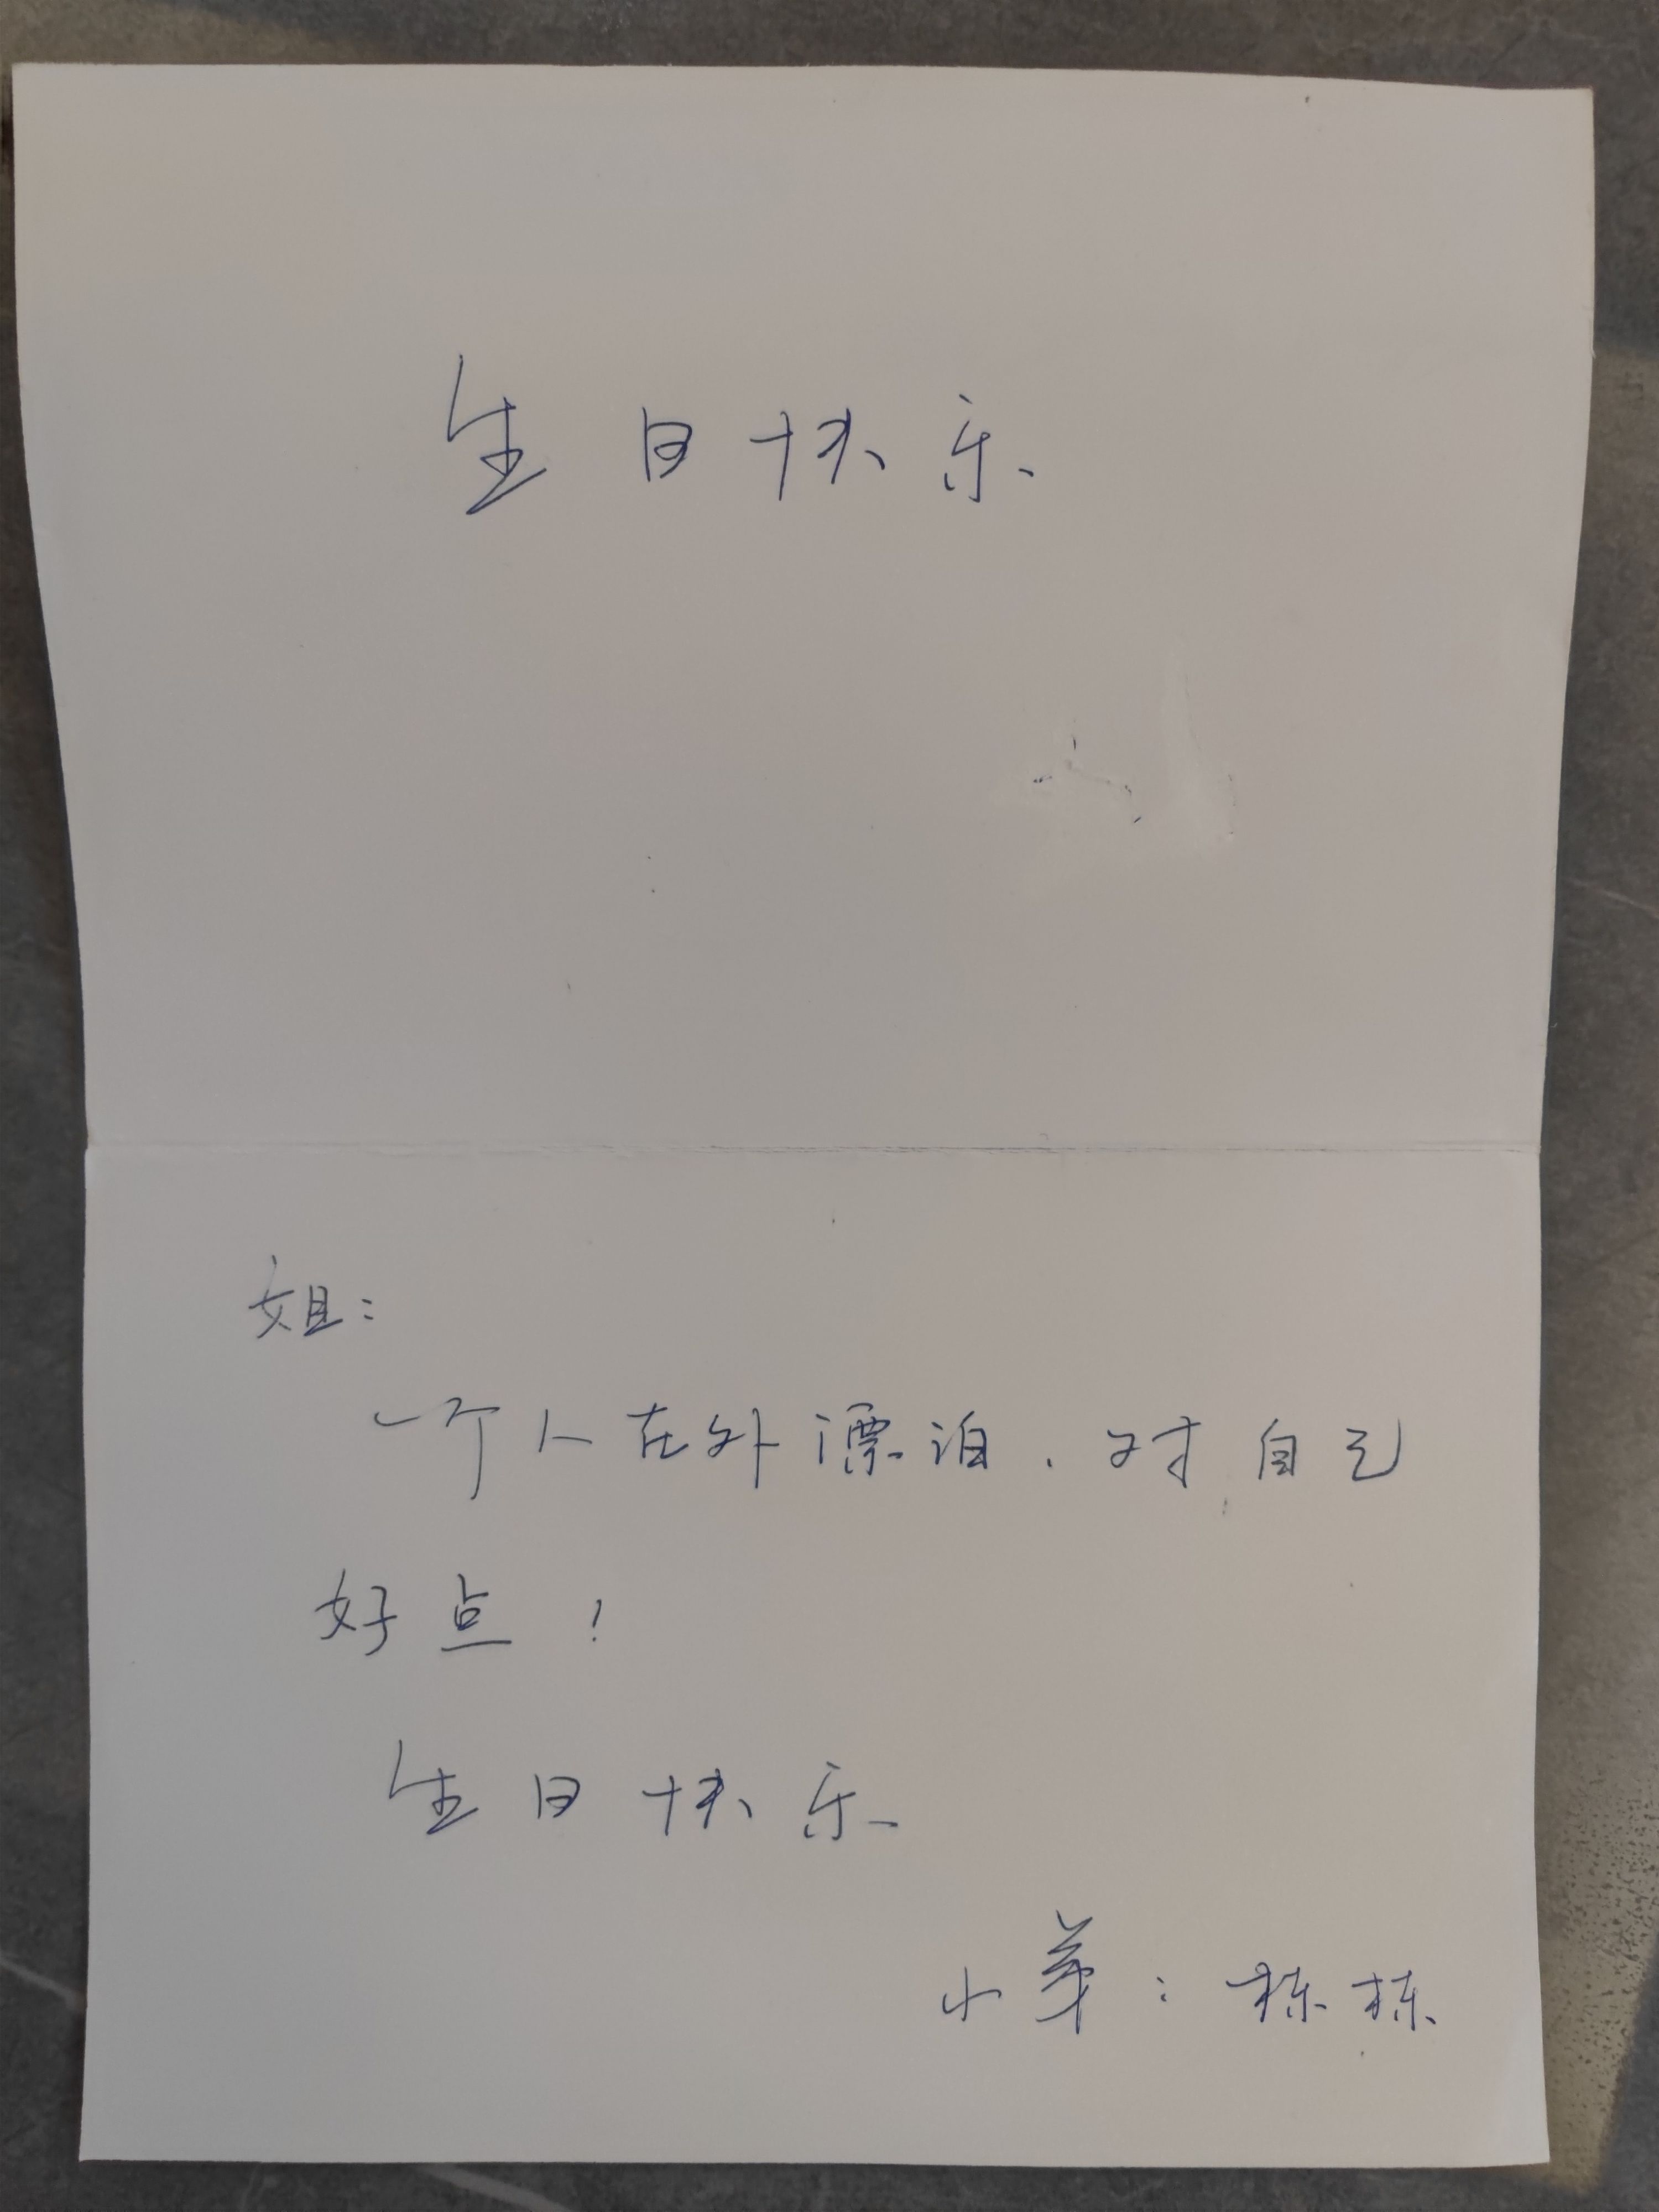 生日快乐
姐：
一个人在外漂泊，对自己
好点！
生日快乐
小弟：栋栋